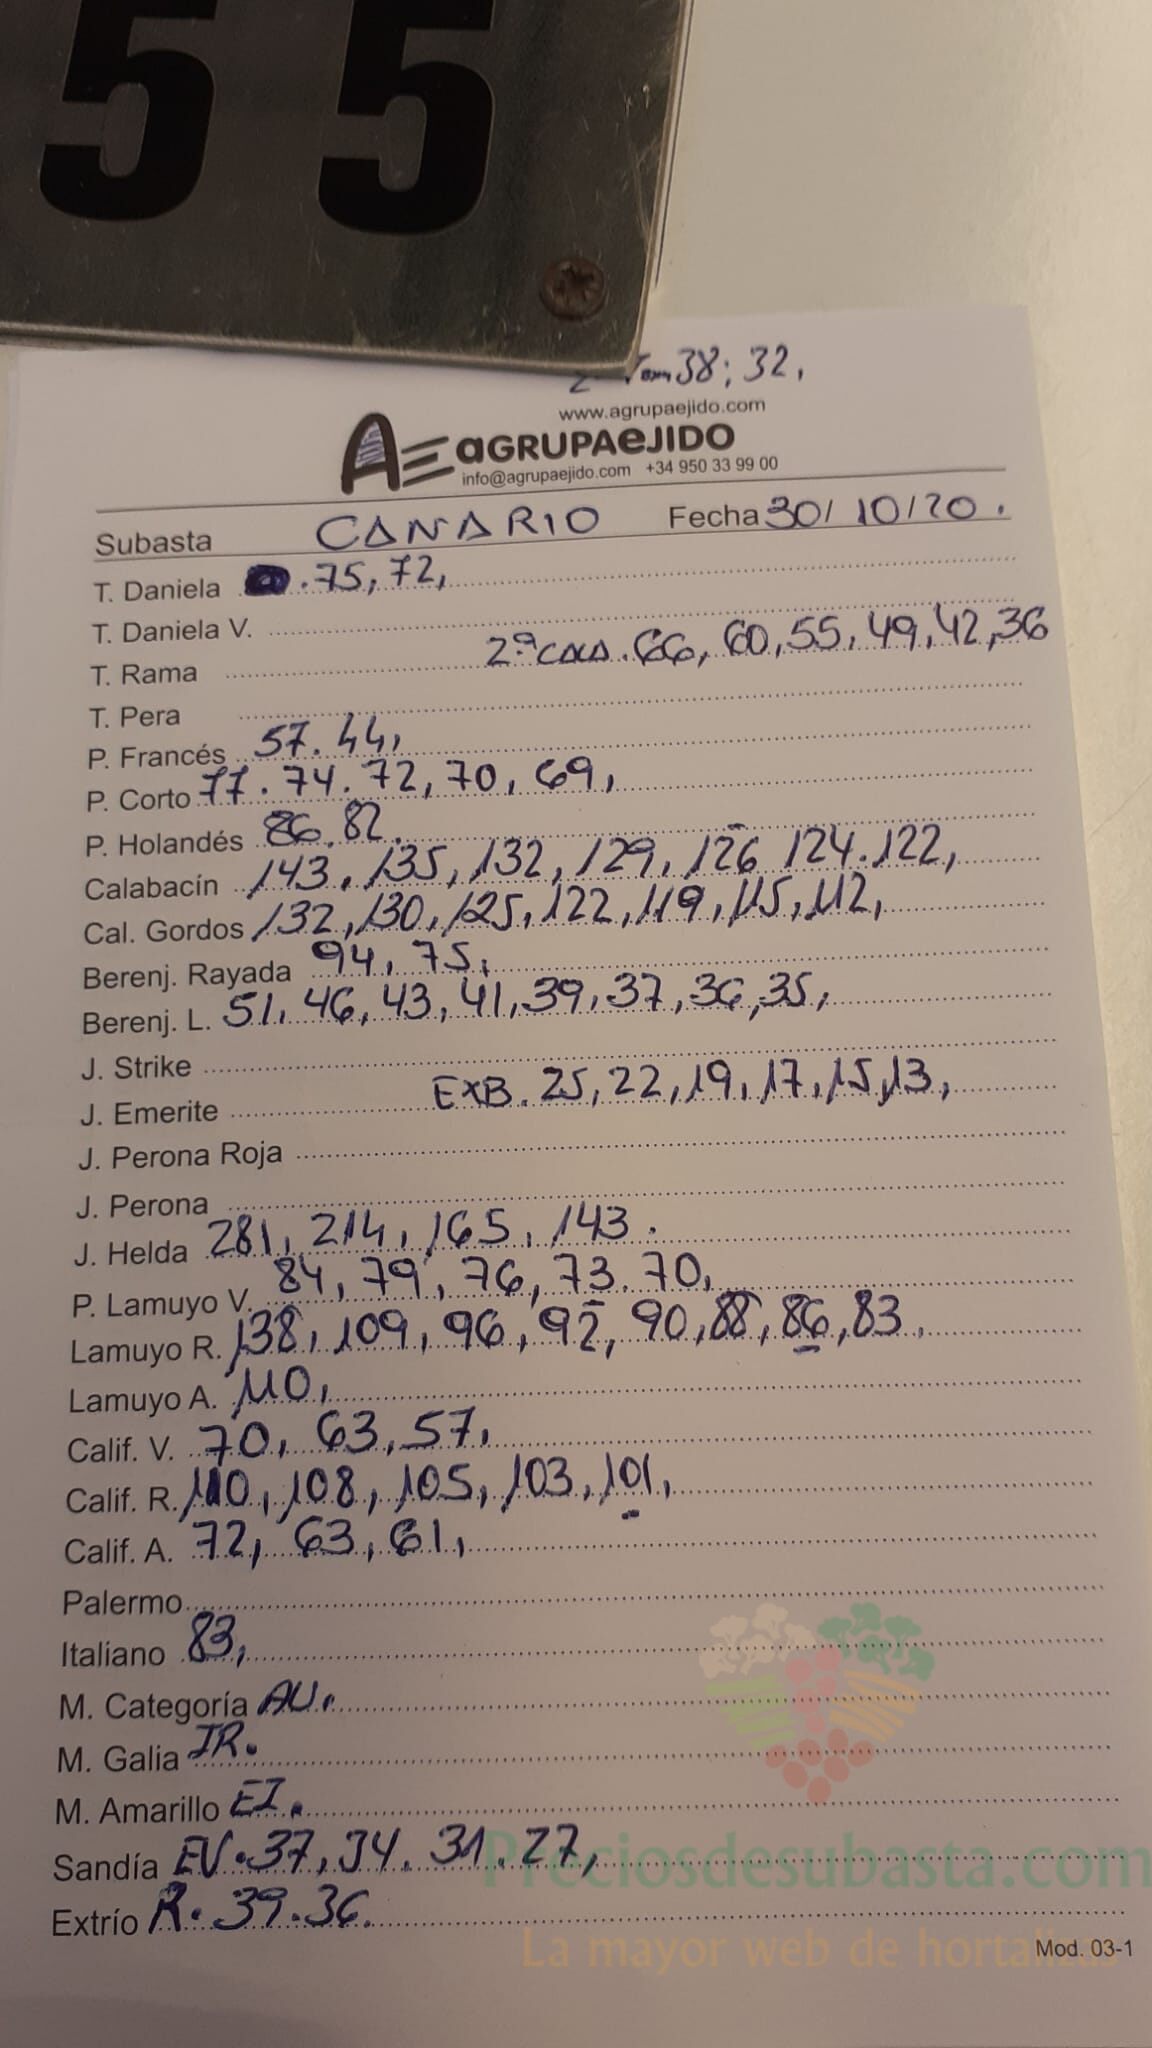 55
38; 32,
www.agrupaejido.com
AE aGRUPAeJIDO
info@agrupaejido.com +34 950 33 99 00
Subasta CANARIO Fecha 30/10/20.
T. Daniela . 75, 72,
T. Daniela V.
T. Rama 2ª . 66, 60, 55, 49, 42, 36
T. Pera
P. Francés 57. 44,
P. Corto 77. 74. 72, 70, 69,
P. Holandés 86. 82.
Calabacín 143, 135, 132, 129, 126 124. 122,
Cal. Gordos 132, 130, 125, 122, 119, 115, 112,
Berenj. Rayada 94, 75,
Berenj. L. 51, 46, 43, 41, 39, 37, 36, 35,
J. Strike
J. Emerite EXB. 25, 22, 19, 17, 15, 13,
J. Perona Roja
J. Perona
J. Helda 281, 214, 165, 143.
P. Lamuyo V. 84, 79, 76, 73. 70,
Lamuyo R. 138, 109, 96, 92, 90, 88, 86, 83.
Lamuyo A. 110,
Calif. V. 70, 63, 57,
Calif. R. 110, 108, 105, 103, 101,
Calif. A. 72, 63, 61,
Palermo
Italiano 83,
M. Categoría AU.
M. Galia IR.
M. Amarillo EI.
Sandía EV. 37, 34. 31. 27,
Extrío R. 39. 36.
Preciosdesubasta.com
La mayor web de hortalizas
Mod. 03-1